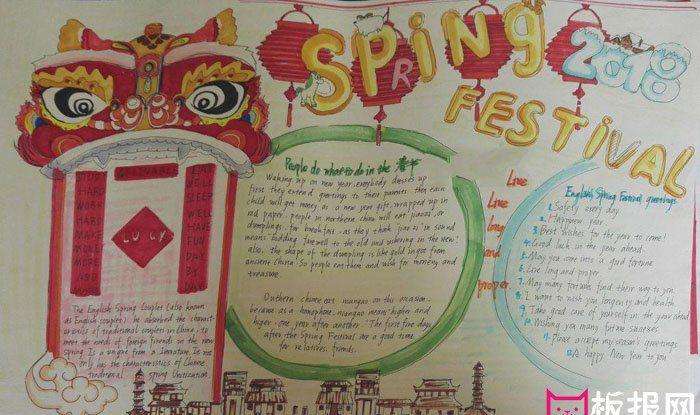 SPRiNG
FESTIVAL
2018
LUCKY
People do what to do in the 春节
Waking up on new year, everybody dresses up
first they extend greetings to their parents. then each
child will get money as a new year gift, wrapped up in
red paper. people in northern china will eat jiaozi, or
dumplings, for breakfast, as they think jiaozi in sound
means bidding farewell to the old and ushering in the new!
also, the shape of the dumpling is like gold ingot from
ancient China. So people eat them and wish for money and
treasure.
on this occasion
because as a homophone, niangao means higher and
higher, one year after another. The first five days
after the Spring Festival are a good time
for relatives, friends.
Live
Live
long
and
proper
English Spring Festival greetings
1. Safely every day
2. Happy new year
3. Best wishes for the year to come!
4. Good luck in the year ahead
5. May you come into a good fortune
6. Live long and proper
7. May many fortune find their way to you
8. I want to wish you longevity and health
9. Take good care of yourself in the year ahead
10. Wishing you many future
11. Please accept my season's greetings
12. A happy New Year to you
The English Spring Couplet (also known
as English couplet), he absorbed the
of traditional couplets in China, to
meet the needs of foreign friends in the new
spring. Is a unique form literature. It not
only has the characteristics of Chinese
traditional Spring Civilization.
板报网